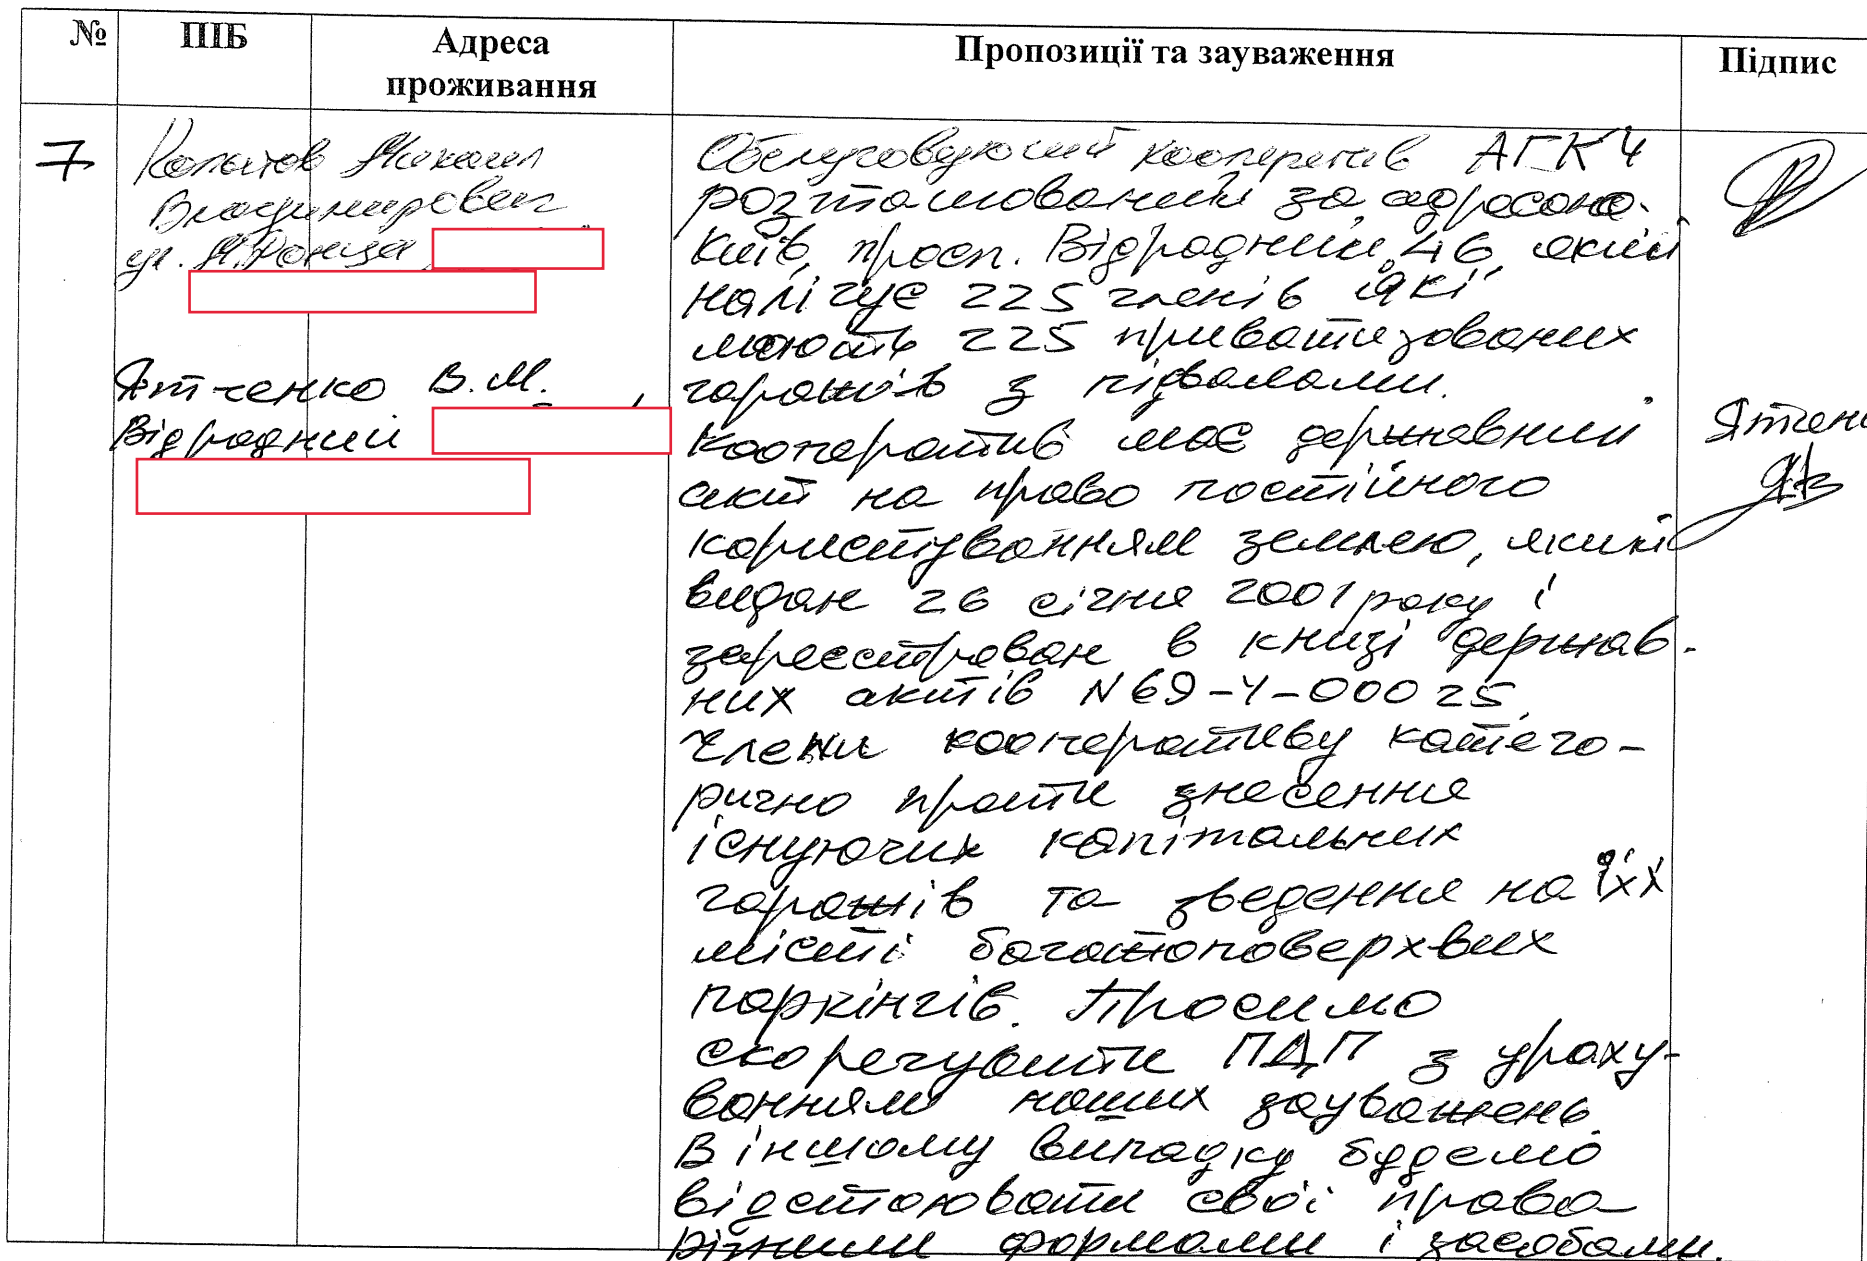 № ПІБ Адреса проживання Пропозиції та зауваження Підпис
7
Михаил
Владимирович
ул.
Ятченко В.М.
Відрадний
Обслуговуючий кооператив АГК Ч
розташований за адресою
Київ, просп. Відрадний, 46, який
налічує 225 членів які
мають 225 приватизованих
гаражів з підвалами.
Кооператив має державний
акт на право постійного
користуванням землею, який
видан 26 січня 2001 року і
зареєстрован в книзі держав-
них актів N69-4-00025.
Члени кооперативу катего-
рично проти знесення
існуючих капітальних
гаражів та зведення на їх
місті багатоповерхвих
паркінгів. Просимо
скорегувати ПДП з ураху-
ванням наших зауважень.
В іншому випадку будемо
відстоювати свої права
різними формами і засобами.
Ятчен